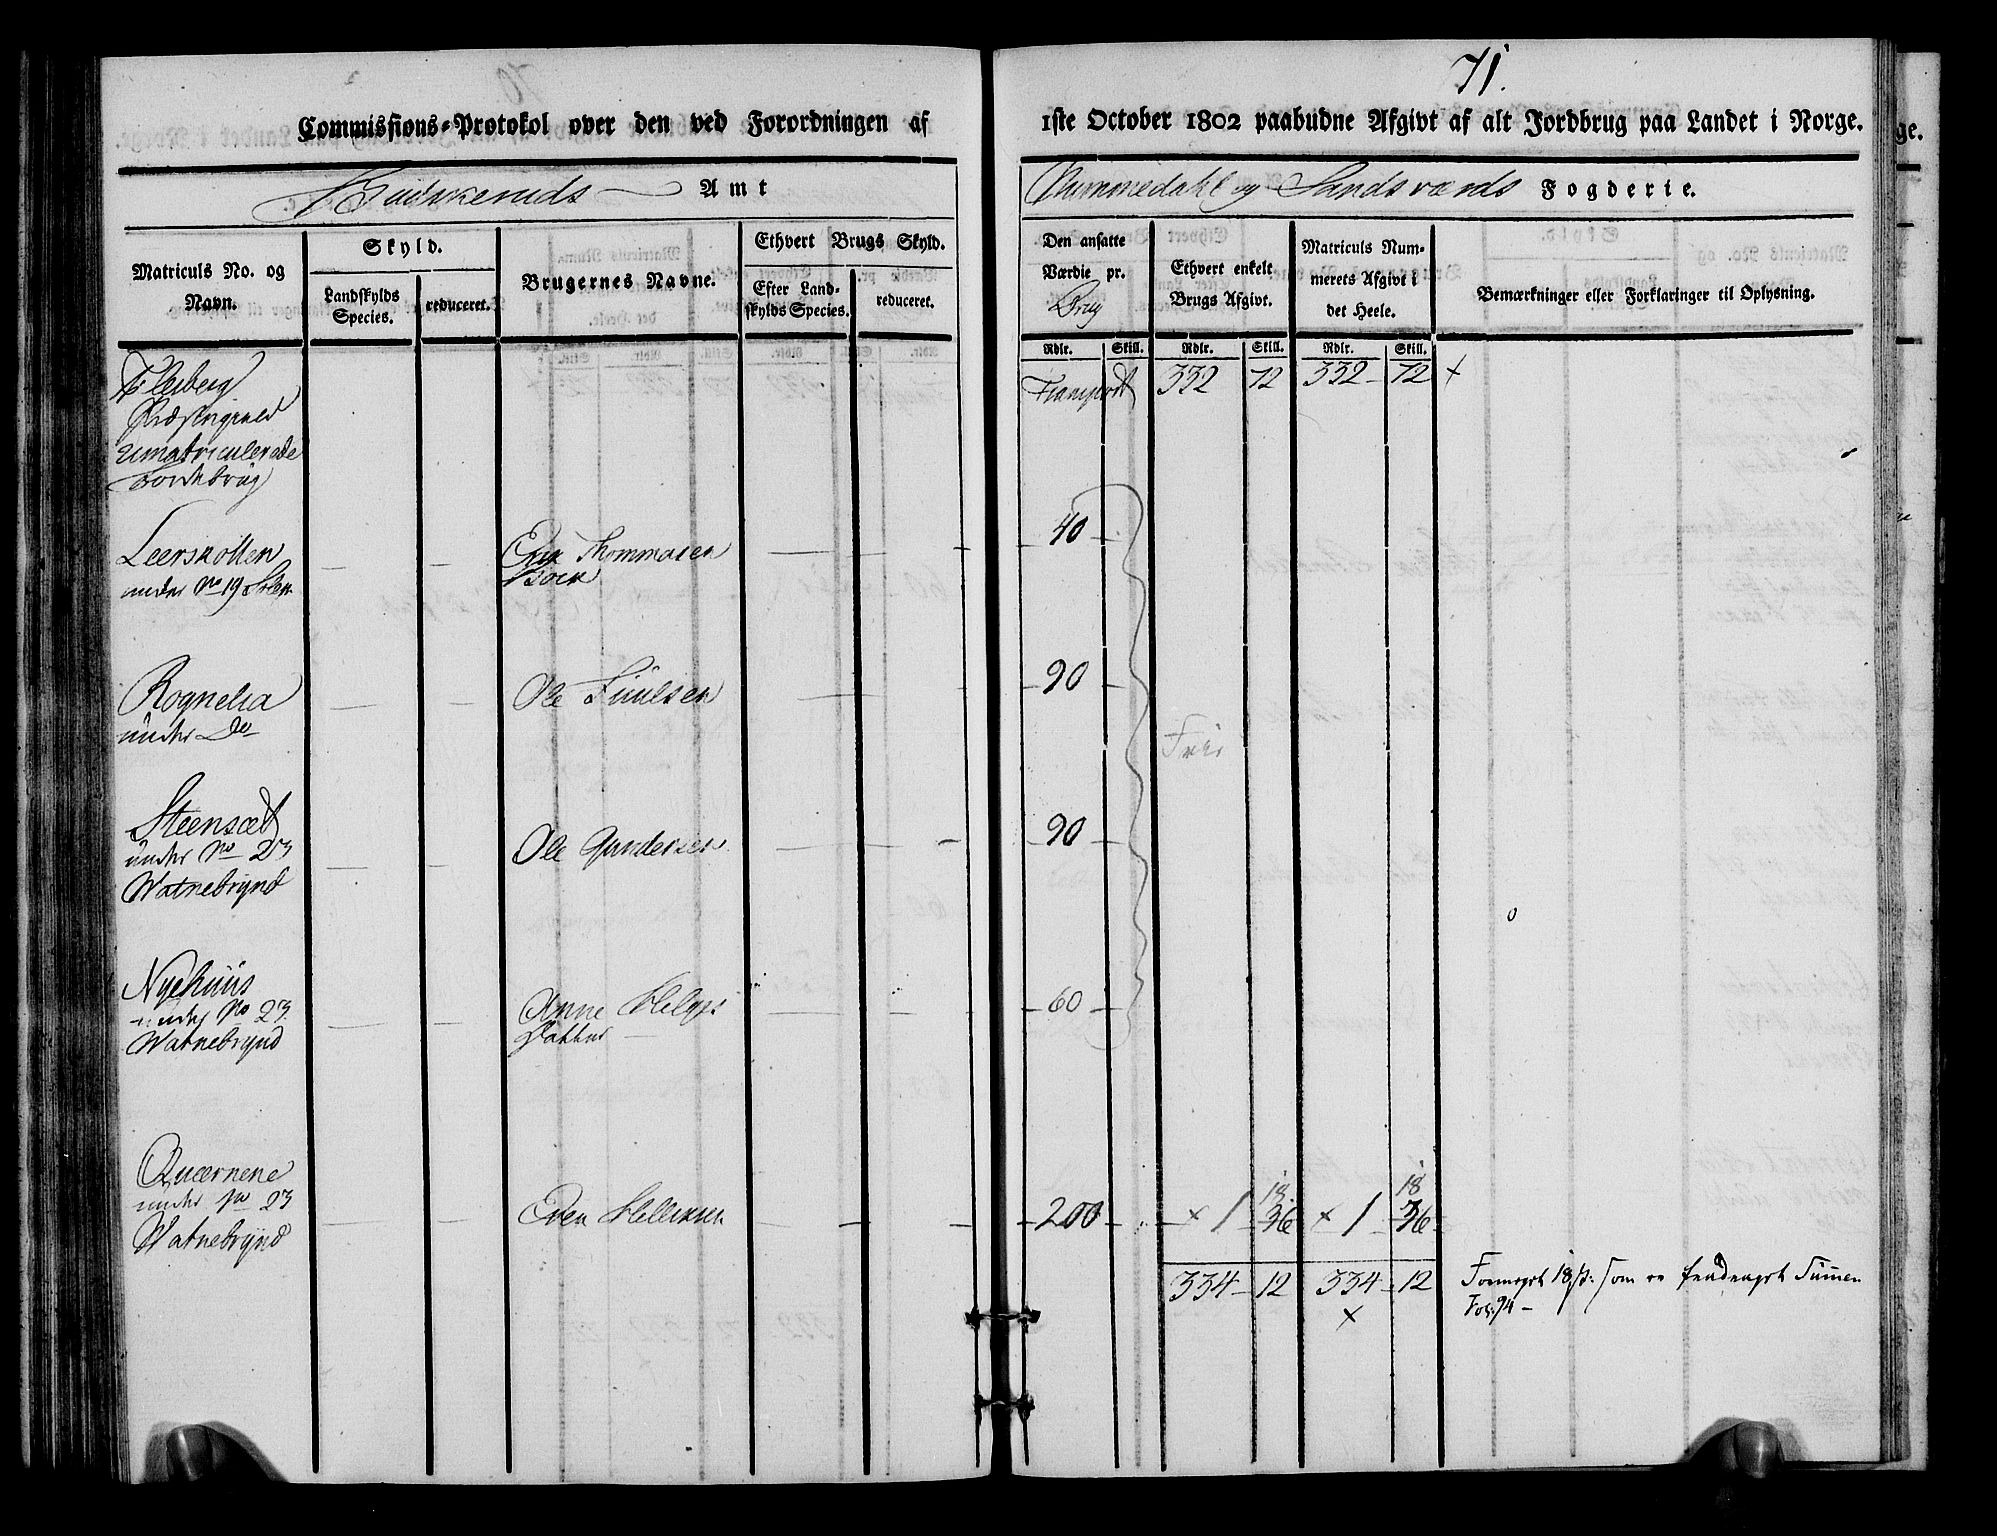 71.
Commissions-Protokol over den ved Forordningen af
1ste October 1802 paabudne Afgivt af alt Jordbrug paa Landet i Norge.
Buskeruds Amt
Nummedahl og Sandsværds Fogderie.
Matriculs No. og Navn.
Skyld.
Landskylds Species.
reduceret.
Brugernes Navne.
Ethvert Brugs Skyld.
Efter Landskylds Species.
reduceret.
Den ansatte Værdie pr. Brug
Ethvert enkelt Brugs Afgivt.
Matriculs Nummerets Afgivt i det Heele.
Bemærkninger eller Forklaringer til Oplysning.
Rdlr. Skill. Rdlr. Skill. Rdlr. Skill.
Flesberg
Præstegield
Umatriculerede
Jordebrug
Transport 332 72 332 - 72 x
Leerskotten
under No 19 Steen
Thommasen
40
Rognelia
under Do
Ole Juulsen
90
Frie
Steensæt
under No 23
Watnebrynd
Ole Gundersen
90
Nyehuus
under No 23
Watnebrynd
Anne Helges
Datter
60
Qværnene
under No 23
Watnebrynd
Even Hellesen
200 x 1 18 36 x 1 18 36
334 - 12 334 - 12
x
Formeget 18 s: som er fradraget Summen
Fol: 94 -